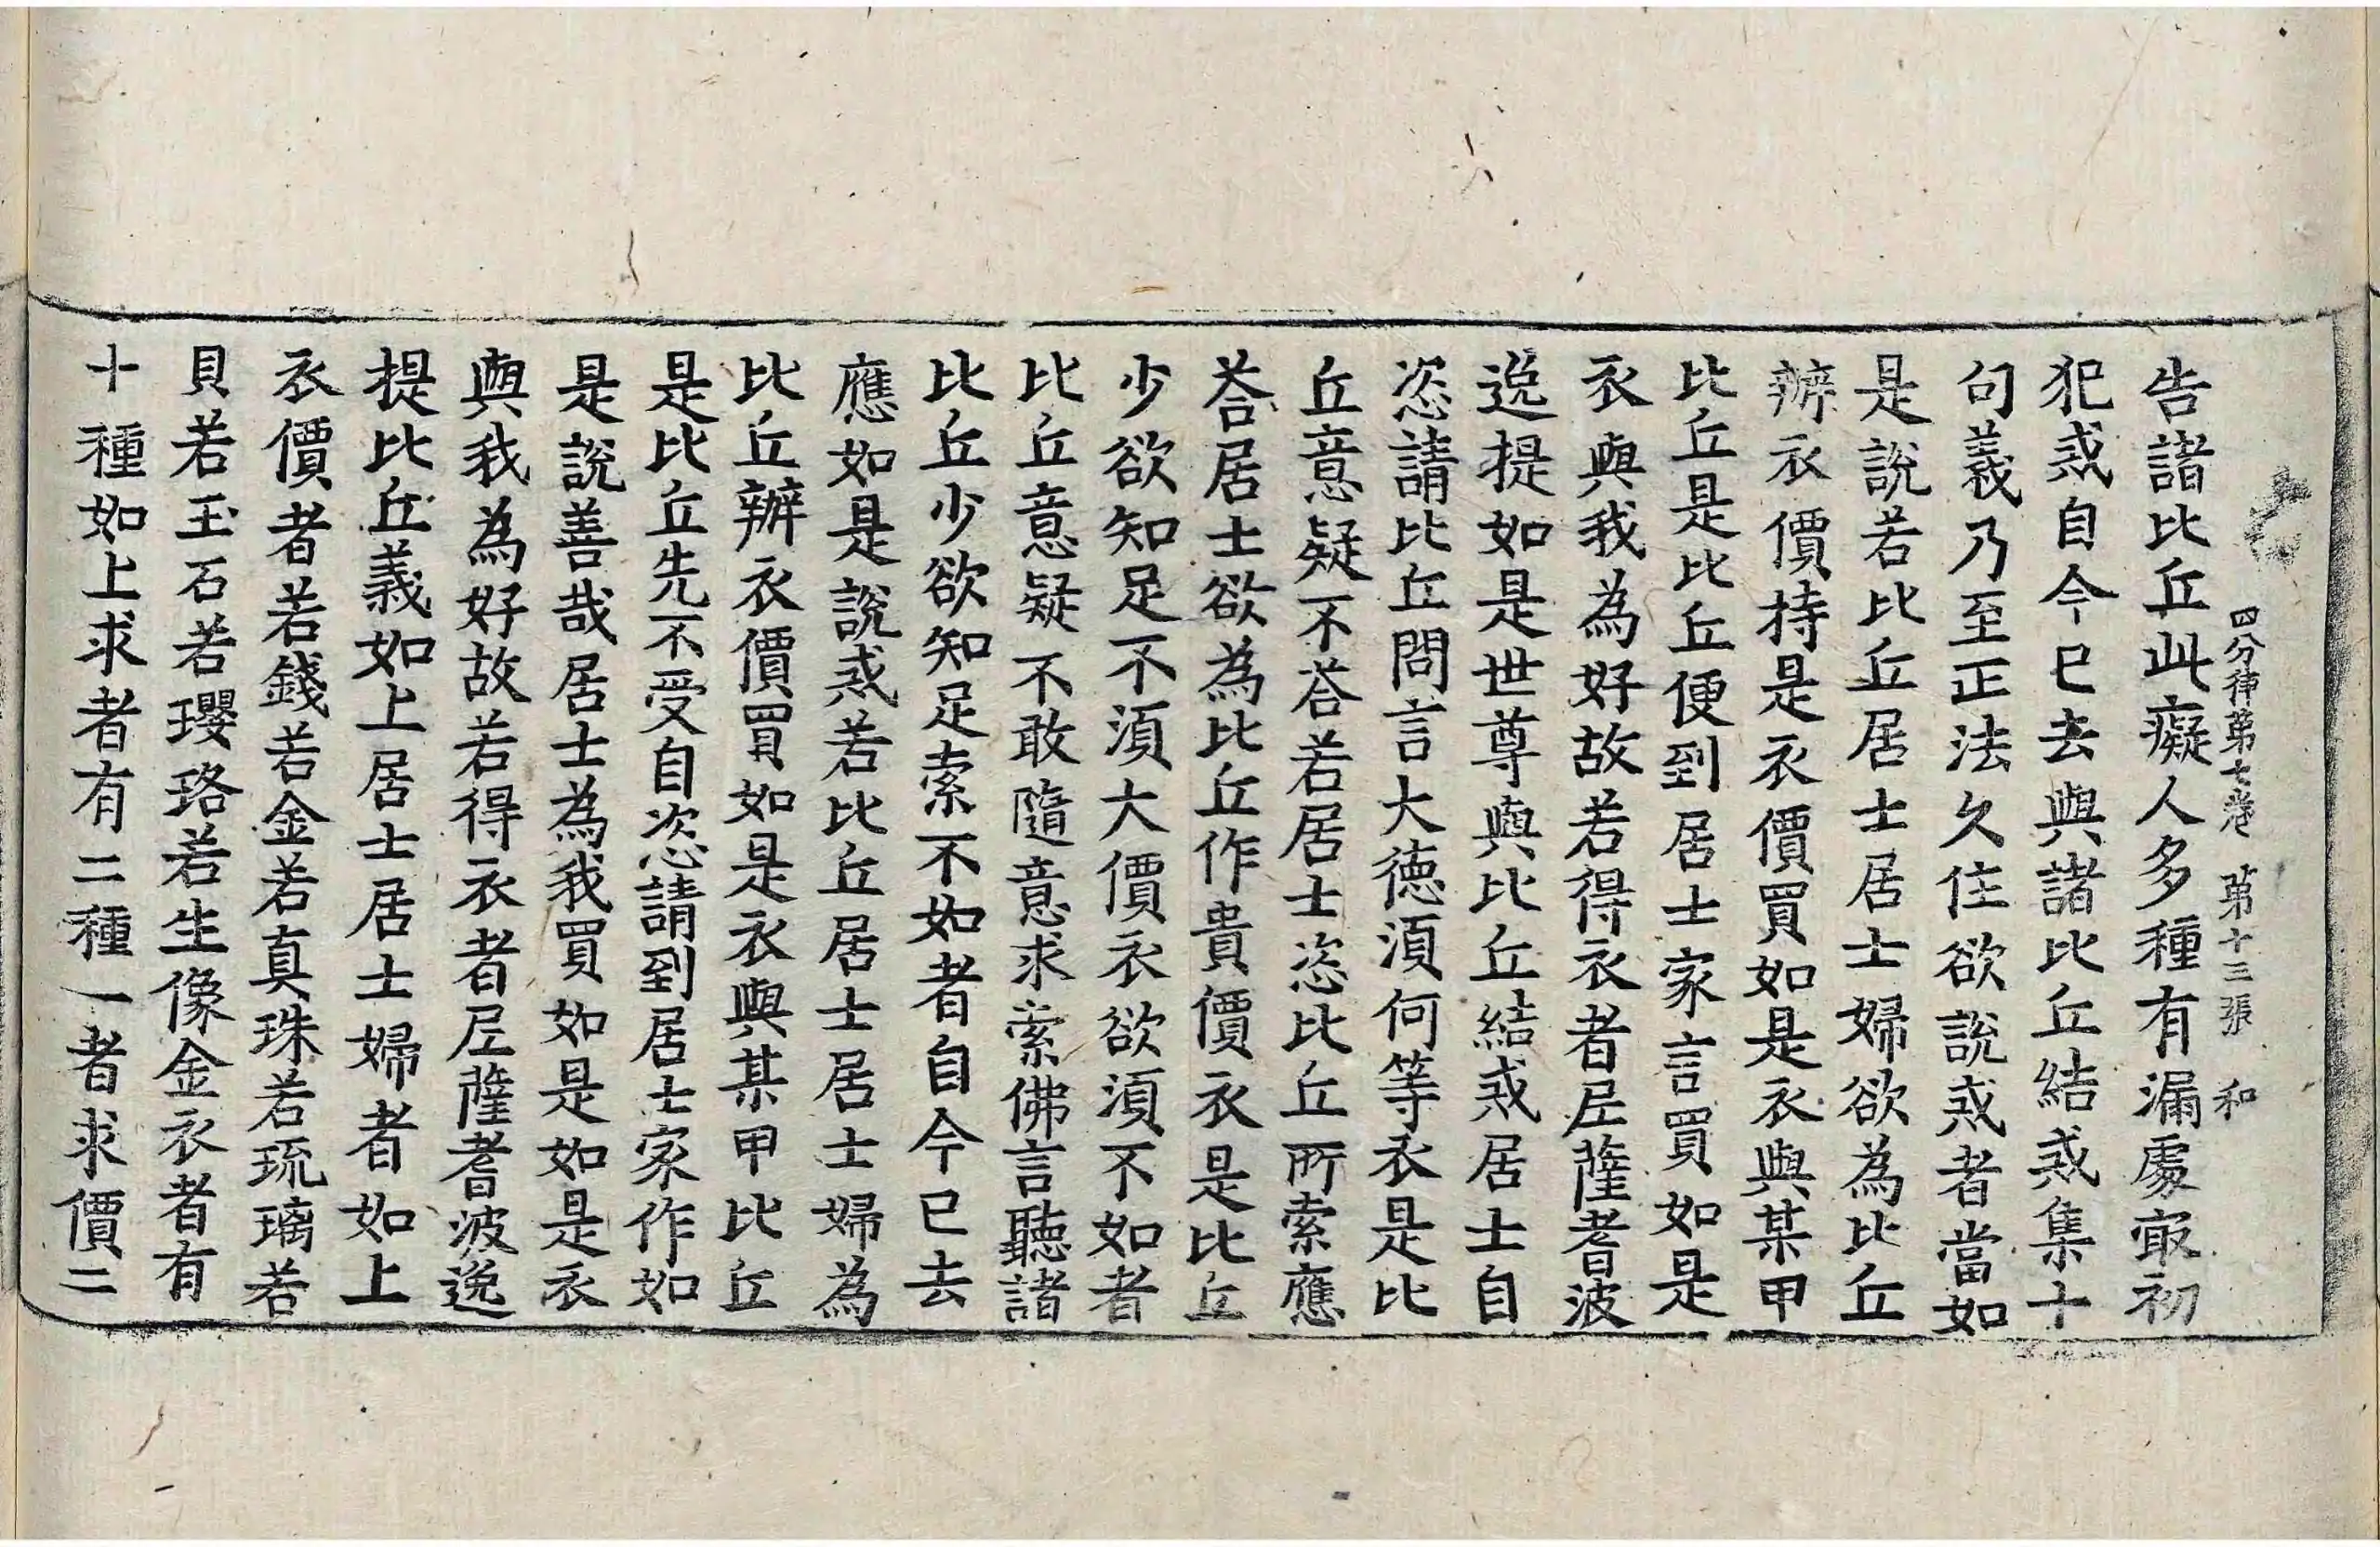 四分律第七卷 第十三張 和
告諸比丘此癡人多種有漏處㝡初
犯戒自今已去與諸比丘結戒集十
句義乃至正法久住欲說戒者當如
是說若比丘居士居士婦欲為比丘
辦衣價持是衣價買如是衣與某甲
比丘是比丘便到居士家言買如是
衣與我為好故若得衣者尼薩耆波
逸提如是世尊與比丘結戒居士自
恣請比丘問言大德須何等衣是比
丘意疑不荅若居士恣比丘所索應
荅居士欲為比丘作貴價衣是比丘
少欲知足不須大價衣欲須不如者
比丘意疑不敢隨意求索佛言聽諸
比丘少欲知足索不如者自今已去
應如是說戒若比丘居士居士婦為
比丘辦衣價買如是衣與某甲比丘
是比丘先不受自恣請到居士家作如
是說善哉居士為我買如是如是衣
與我為好故若得衣者尼薩耆波逸
提比丘義如上居士居士婦者如上
衣價者若錢若金若真珠若琉璃若
貝若玉石若瓔珞若生像金衣者有
十種如上求者有二種一者求價二